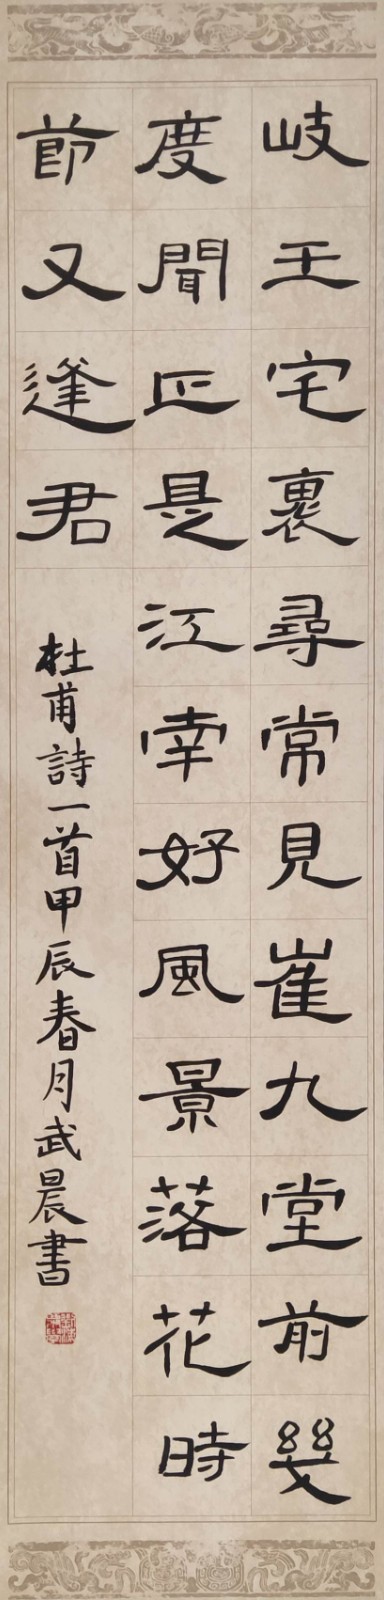 岐王宅裏尋常見崔九堂前幾
度聞正是江南好風景落花時
節又逢君
杜甫詩一首甲辰春月武晨書